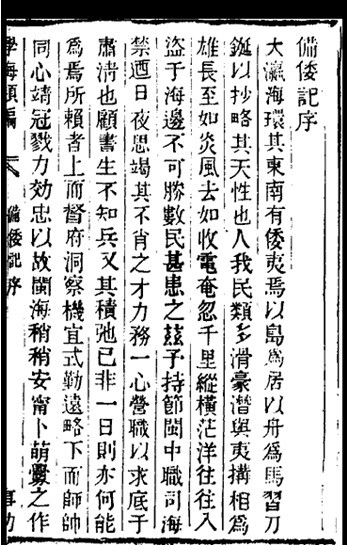 備倭記序
大瀛海環其東南有倭夷焉以島為居以舟為馬習刀
鋋以抄略其天性也人我民類多滑豪潛與夷搆相為
雄長至如炎風去如收電奄忽千里縱橫茫洋往往入
盜于海邊不可勝數民甚患之茲予持節閩中職司海
禁迺日夜思竭其不肖之才力務一心營職以求底于
肅清也顧書生不知兵又其積弛已非一日則亦何能
為焉所賴者上而督府洞察機宜式勤遠略下而師帥
同心靖寇戮力効忠以故閩海稍稍安甯卜萌釁之作
學海類編
備倭記序